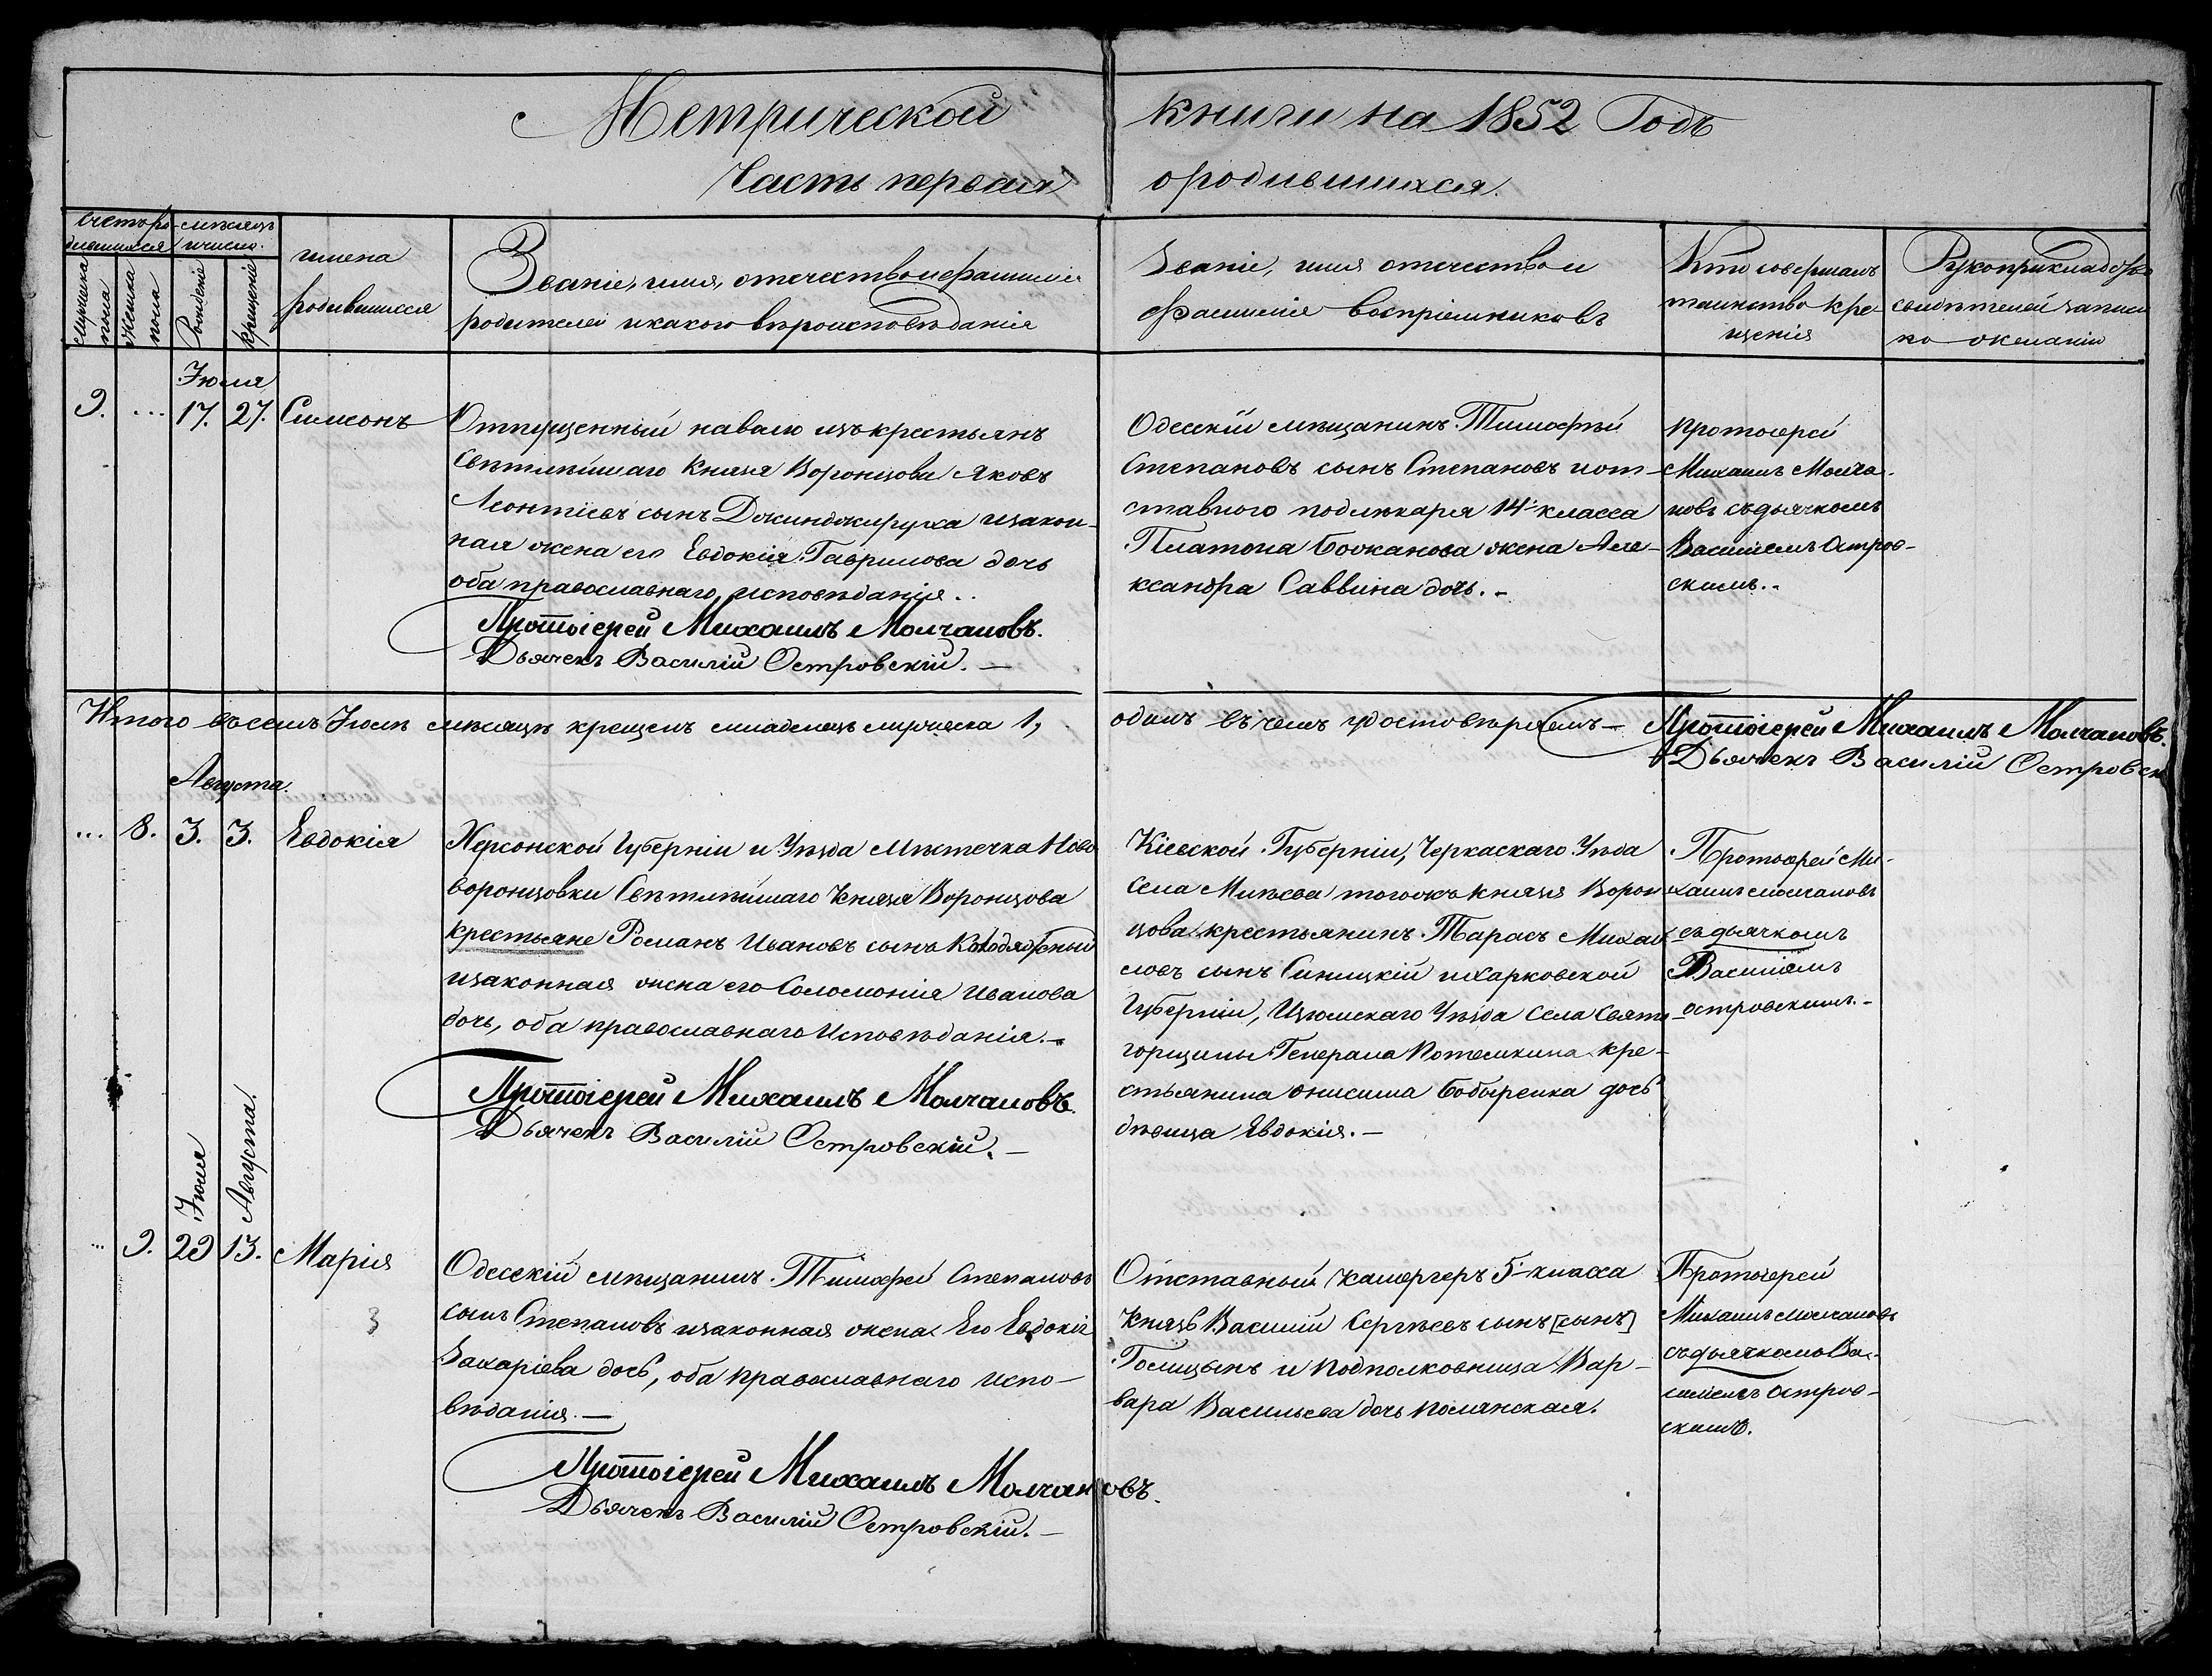 Метрической книги на 1852 Годъ
Часть первая о родившихся.
счетъ ро-
дившихся
мѣсяцъ
и число.
мужска
пола
женска
пола
Рожденіе
крещеніе
имена
родившихся
Званіе, имя, отечество и фамилія
родителей и какого вѣроисповѣданія
Званіе, имя отечество и
фамилія воспріемниковъ
Кто совершалъ
таинство кре-
щенія
Рукоприкладство
свидѣтелей записи
по желанію
Іюля
9. ... 17. 27. Симеонъ
Отпущенный наволю изъ крестьянъ
Свѣтлѣйшаго Князя Воронцова Яковъ
Леонтіевъ сынъ Джинджируха и закон-
ная жена его Евдокія Гаврилова дочь
оба православнаго исповѣданія..
Протоіерей Михаилъ Молчановъ.
Дьячекъ Василій Островскій. —
Одесскій мѣщанинъ Тимофѣй
Степановъ сынъ Степановъ и от-
ставного подлѣкаря 14 класса
Платона Божанова жена Але-
ксандра Саввина дочь. -
протоіерей
Михаилъ Молча-
новъ съ дьячкомъ
Василіемъ Остров-
скимъ. -
Итого въ семъ Іюлѣ мѣсяцѣ крещенъ младенецъ мужеска 1, одинъ въ чемъ удостовѣряемъ — Протоіерей Михаилъ Молчановъ.
Дьячекъ Василій Островскі
Августа.
... 8. 3. 3. Евдокія
Херсонской Губерніи и Уѣзда Мѣстечка Ново
воронцовки Свѣтлѣйшаго Князя Воронцова
крестьяне Романъ Ивановъ сынъ
и законная жена его Соломонія Иванова
дочь, оба православнаго Исповѣданія. -
Протоіерей Михаилъ Молчановъ.
Дьячекъ Василій Островскій. —
Кіевской Губерніи, Черкаскаго Уѣзда
Села Млѣева тогожъ князя Ворон
цова крестьянинъ Тарасъ Михай
ловъ сынъ Синицкій и Харковской
Губерніи, Изюмскаго Уѣзда Села Свято
горщины Генерала Потемкина кре-
стьянина Онисима Бобыренка дочь
дѣвица Явдокія. —
Протоіерей Ми-
хаилъ Молчановъ
съ дьячкомъ
Василіемъ
островскимъ. -
Іюля
Августа.
... 9. 29 13. Марія
3
Одесскій мѣщанинъ Тимофей Степановъ
сынъ Степановъ и законная жена Его Евдокія
Захаріева дочь, оба православнаго испо-
вѣданія. —
Протоіерей Михаилъ Молчановъ.
Дьячекъ Василій Островскій. —
Отставный камергеръ 5 класса
Князь Василій Сергѣевъ сынъ [сынъ]
Голицынъ и Подполковница Вар-
вара Васильева дочь Полянская.
Протоіерей
Михаилъ Молчановъ
съ дьячкомъ Ва-
силіемъ Остров-
скимъ.